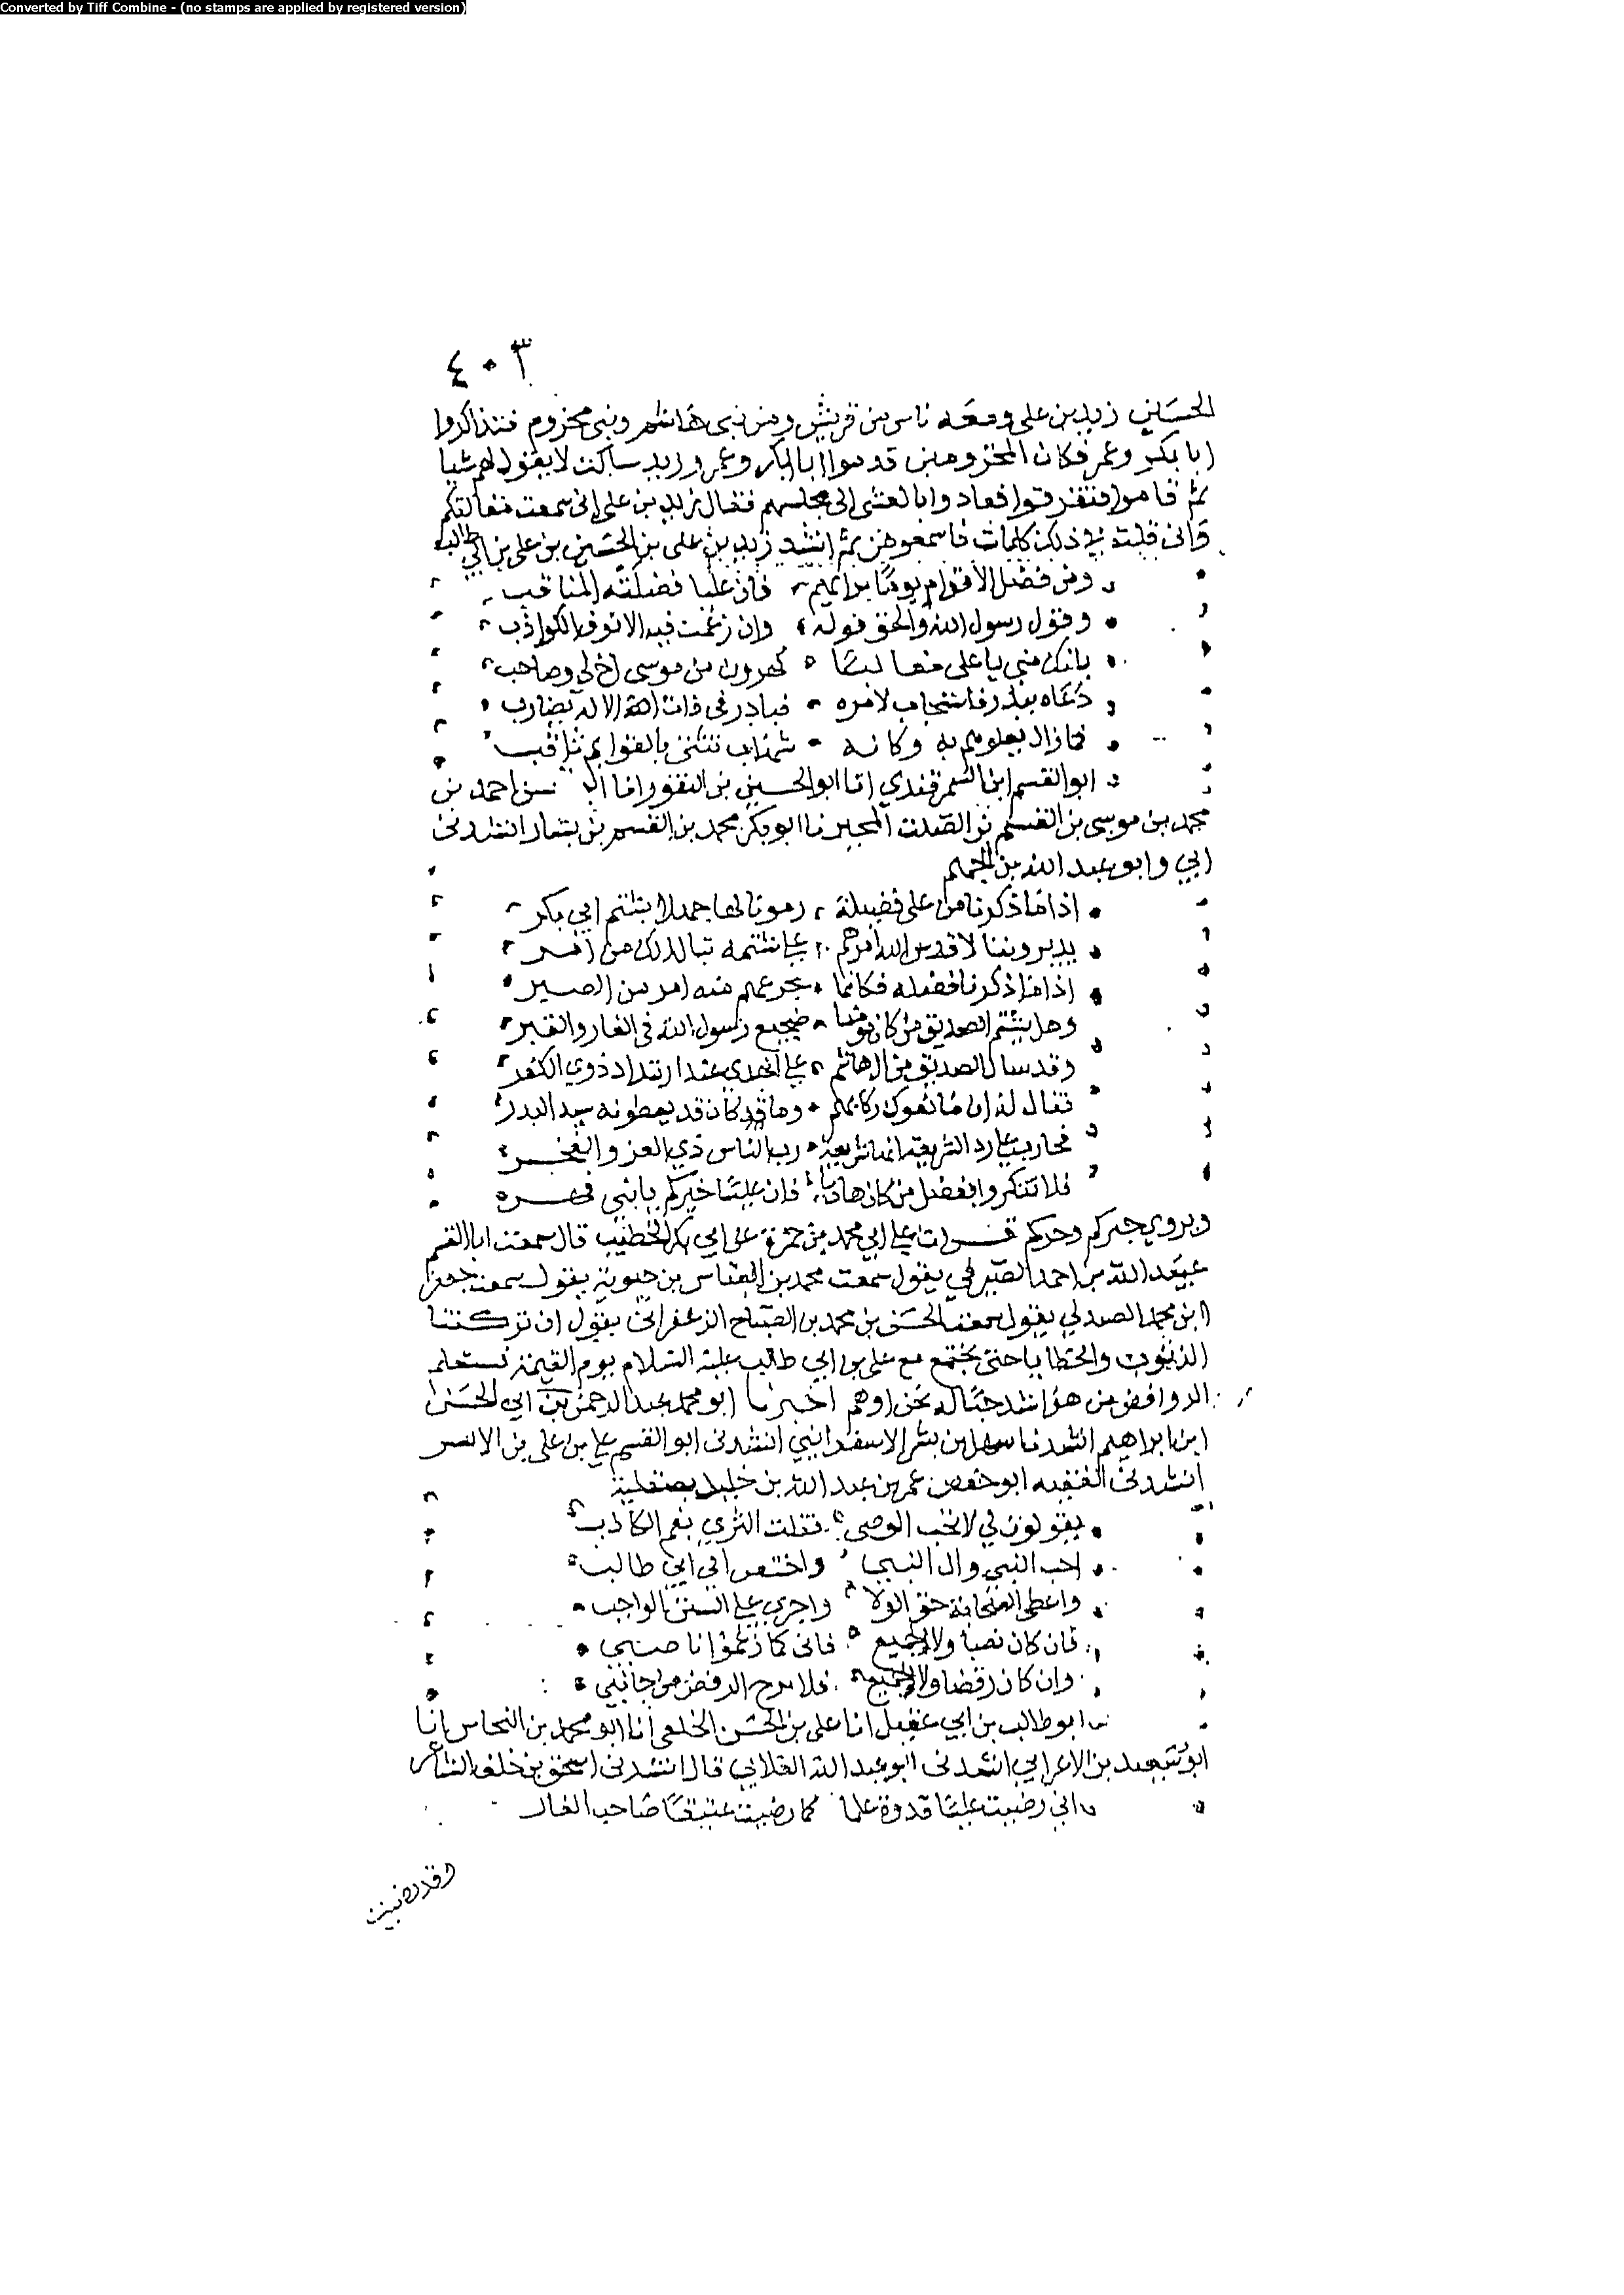 Converted by Tiff Combine - (no stamps are applied by registered version)
٤٠٣
الحسين زيد بن على ومعه ناس من قريش ومن بنى هاشم وبنى مخزوم فتذاكروا
ابا بكر وعمر فكان المخزوميين قدموا ابا بكر وعمر وزيد ساكت لا يقول لهم شيا
ثم قاموا فتفرقوا فعادوا بالعشى الى مجلسهم فقال زيد بن على انى سمعت مقالتكم
وانى قلت فى ذلك كلمات فاسمعوهن ثم انشد زيد بن على بن الحسين بن على بن ابي طالب
ومن فضل الاقوام يوما برايهم فان عليا فضلته المناقب
وقول رسول الله والحق قوله وان رغمت فيه الانوف الكواذب
بانك مني يا على معالنا كهرون من موسى اخ لي وصاحب
دعاه ببدر فاستجاب لامره فبادر فى ذات الاله يضارب
فما زال يعلوهم به وكانه شهاب تثنى بالقوايم ثاقب
ابو القسم ابن السمرقندي انا ابو الحسين بن النقور انا احمد بن
محمد بن موسى بن القسم بن الصلت المجبر نا ابو بكر محمد بن القسم بن بشار انشدنى
ابي وابو عبد الله بن الجهم
اذا ما ذكرنا من على فضيلة رمونا لها جهلا بشتم ابي بكر
يديروننا لا قدس الله امرهم على شتمه تبا لذلك من امر
اذا ما ذكرنا فضله فكانما نجرعهم منه امر من الصبر
وهل يشتم الصديق من كان مومنا ضجيع رسول الله فى الغار والقبر
وقد سال الصديق من ال هاشم على الهدى عند ارتداد ذوي الكفر
فقال له ان مانعوك زكاتهم وما قد كان قد يعطونه سيد البدر
فحاربت على رد الشريعة انما شريعة رب الناس ذي العز والفخر
فلا تنكروا تفضيل من كان هاديا فان عليا خيركم يا بنى فهر
ويروي حبركم قرات على ابي محمد بن حمزة على ابي بكر الخطيب قال سمعت ابا القسم
عبيد الله بن احمد الصيرفي يقول سمعت محمد بن العباس بن حيوية يقول سمعت جعفر
ابن محمد الصندلي يقول سمعت الحسن بن محمد بن الصباح الزعفرانى يقول ان تركتنا
الذنوب والخطايا حتى نجتمع مع على بن ابي طالب عليه السلام يوم القيمة فستعلم
الروافض من هو اشد حبا له نحن او هم اخبرنا ابو محمد عبد الرحمن بن ابي الحسن
ابن ابراهيم انشدنا سهل بن بشر الاسفرايني انشدنى ابو القسم على بن على بن
انشدنى الفقيه ابو حفص عمر بن عبد الله بن خليد بصقلية
يقولون لي لا تحب الوصى فقلت الثرى بفم الكاذب
احب النبى وال النبى واختص ال ابي طالب
واعطى الصحابة حق الولا واجري على السنن الواجب
فان كان نصبا ولا الجميع فانى كما زعموا ناصبي
وان كان رفضا ولا الجميع فلا برح الرفض من جانبي
ابو طالب بن ابي عقيل انا على بن الحسن الخلعى انا ابو محمد بن النحاس انا
ابو سعيد بن الاعرابي انشدنى ابو عبد الله الغلابي قال انشدنى اسحق بن خلف الشاعر
انى رضيت عليا قدوة علما كما رضيت عتيقا صاحب الغار
وقد رضيت